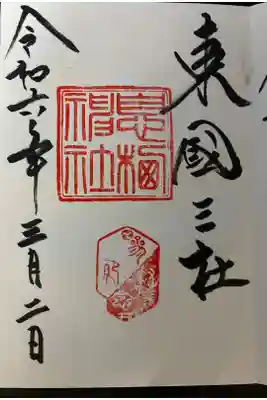 東國三社
息栖神社
令和六年三月二日